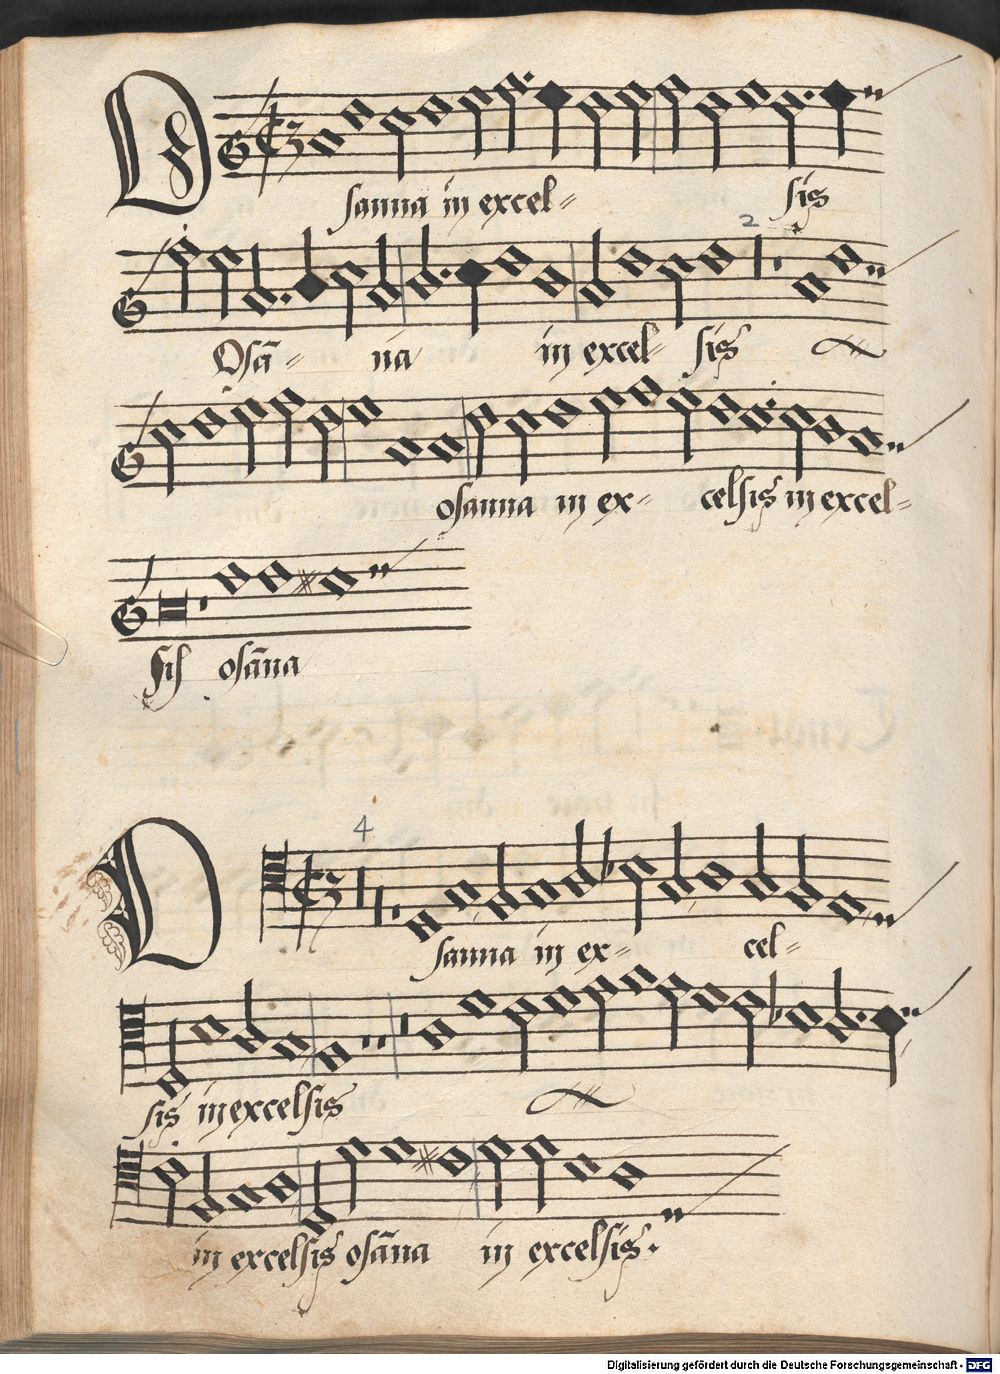 Osanna in excel= sis
2
Osā= na in excel= sis
osanna in ex= celsis in excel=
sis osāna
4
Osanna in ex= cel=
sis in excelsis
in excelsis osāna in excelsis.
Digitalisierung gefördert durch die Deutsche Forschungsgemeinschaft - DFG